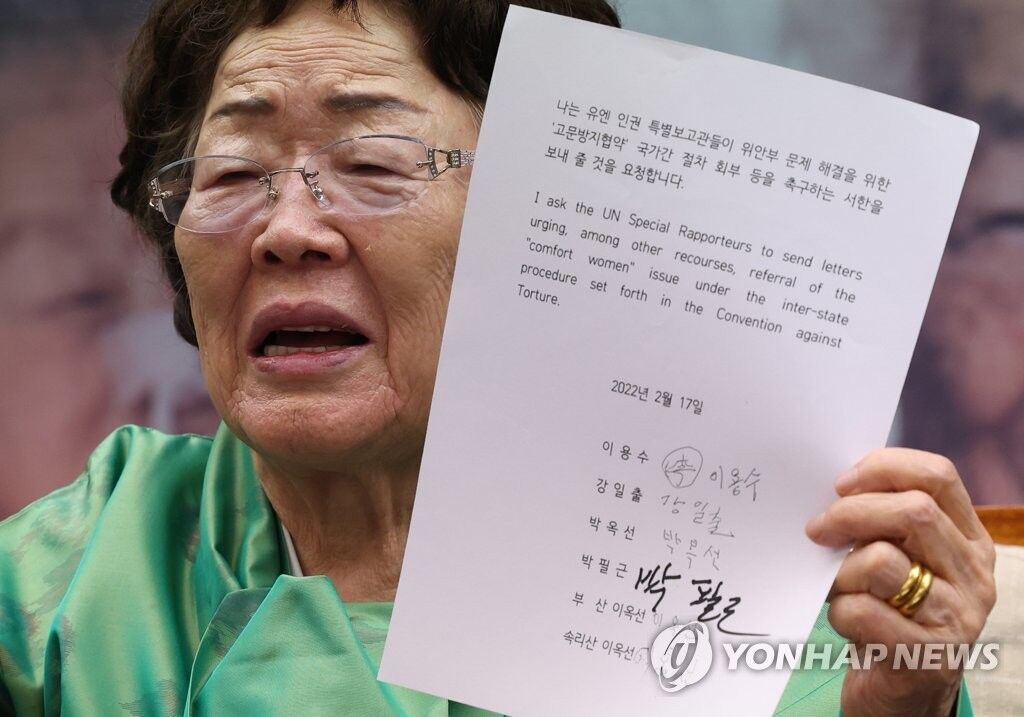 나는 유엔 인권 특별보고관들이 위안부 문제 해결을 위한
'고문방지협약' 국가간 절차 회부 등을 촉구하는 서한을
보내 줄 것을 요청합니다.
I ask the UN Special Rapporteurs to send letters
urging, among other recourses, referral of the
"comfort women" issue under the inter-state
procedure set forth in the Convention against
Torture.
2022년 2월 17일
이용수 이용수
강일출 강일출
박옥선 박옥선
박필근 박필근
부산 이옥선
속리산 이옥선
YONHAP NEWS